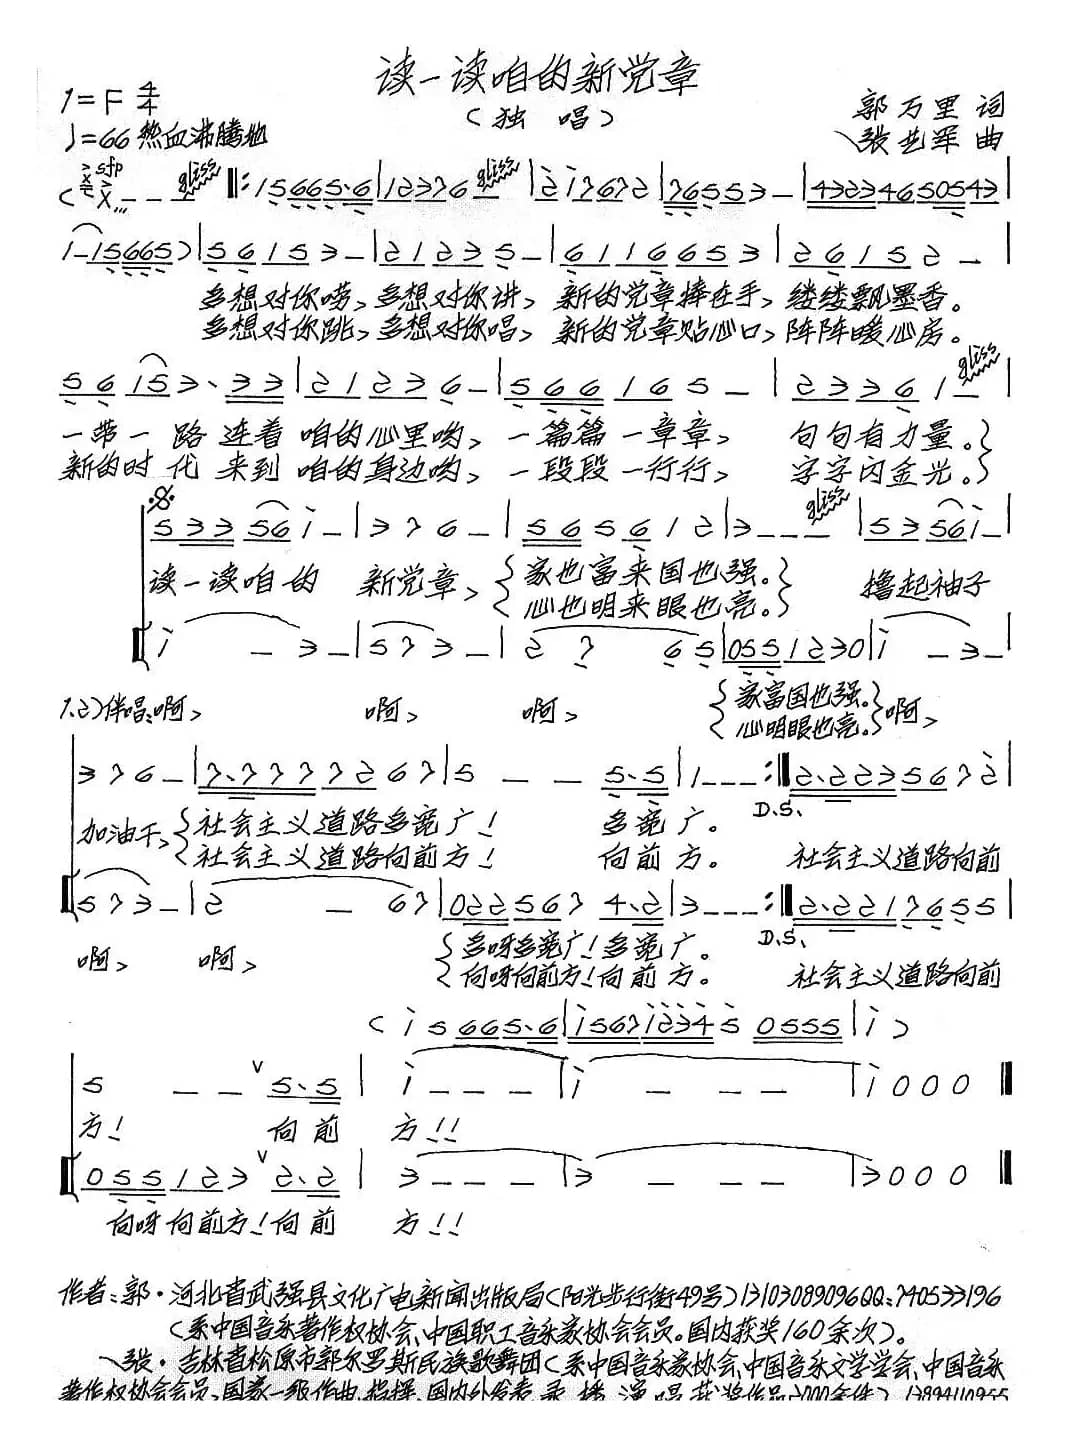 读一读咱的新党章
（独 唱）
1=F 4/4
♩=66 热血沸腾地
郭万里 词
张艺军 曲
sfp
gliss
多想对你唠、多想对你讲、新的党章捧在手、缕缕飘墨香。
多想对你跳、多想对你唱、新的党章贴心口、阵阵暖心房。
gliss
一带一路连着咱的心里哟、一篇篇一章章、句句有力量。
新的时代来到咱的身边哟、一段段一行行、字字闪金光。
gliss
读一读咱的 新党章、家也富来国也强。撸起袖子
心也明来眼也亮。
1.2)伴唱：啊、 啊、 啊、 家富国也强。啊、
心明眼也亮。
D.S.
加油干、社会主义道路多宽广！ 多宽广。
社会主义道路向前方！ 向前方。 社会主义道路向前
D.S.
啊、 啊、 多呀多宽广！多宽广。
向呀向前方！向前方。 社会主义道路向前
方！ 向前 方！！
向呀向前方！向前 方！！
作者：郭·河北省武强县文化广电新闻出版局（阳光步行街49号）13103089096QQ：740533196
（系中国音乐著作权协会、中国职工音乐家协会会员。国内获奖160余次）。
张·吉林省松原市郭尔罗斯民族歌舞团（系中国音乐家协会、中国音乐文学学会、中国音乐
著作权协会会员、国家一级作曲、指挥、国内外发表